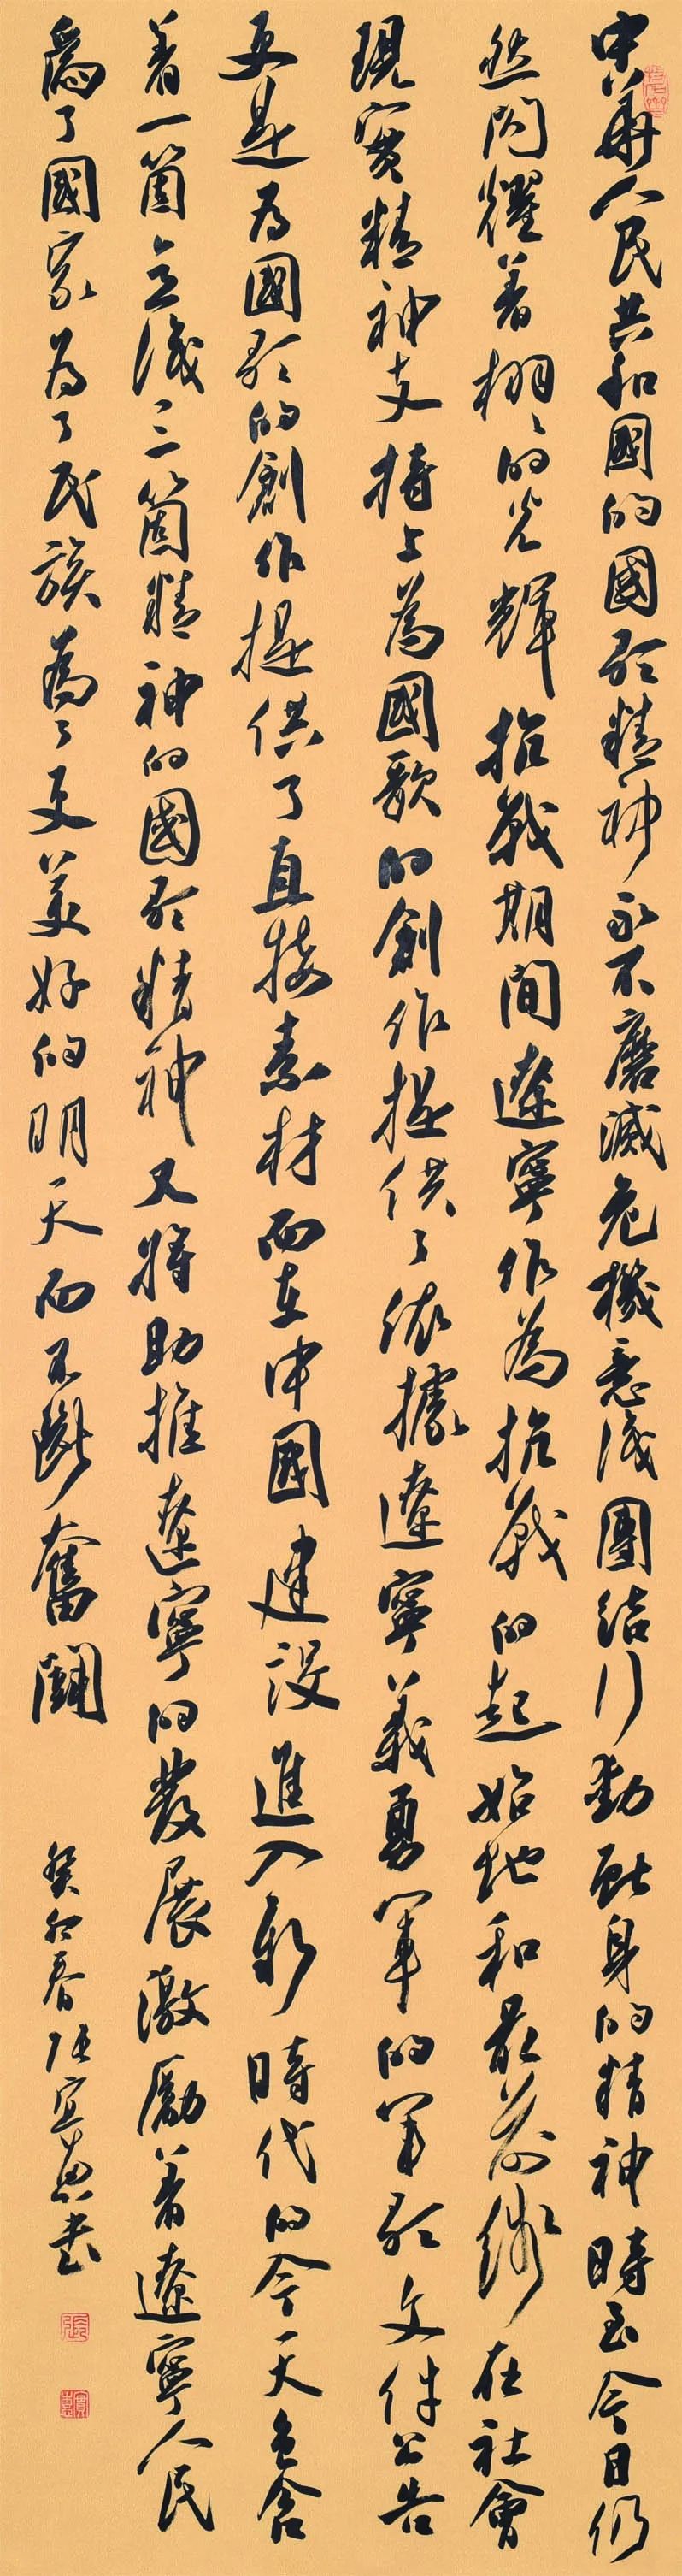 中華人民共和國的國歌精神永不磨滅危機意識團結行動獻身的精神時至今日仍
然閃耀着栩々的光輝抗戰期間遼寧作為抗戰的起始地和最前線在社會
現實精神支持上為國歌的創作提供了依據遼寧義勇軍的軍歌文件公告
更是為國歌的創作提供了直接素材而在中國建設進入新時代的今天包含
着一箇意識三箇精神的國歌精神又將助推遼寧的發展激勵着遼寧人民
為了國家為了民族為了更美好的明天而不斷奮鬪
癸卯春張寅惠書